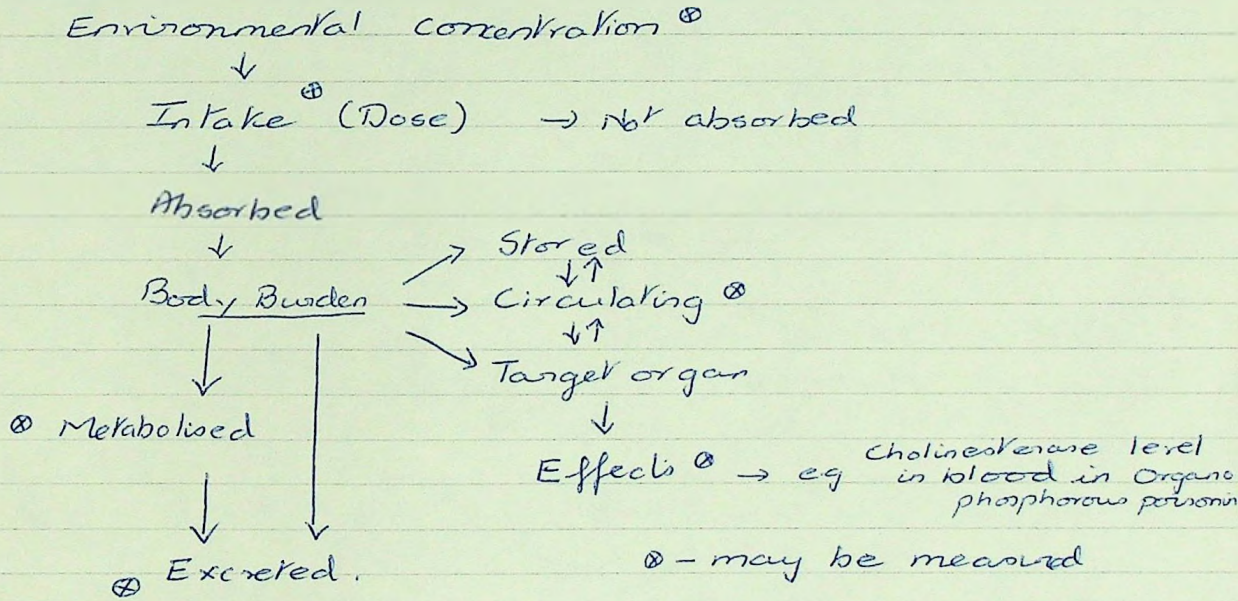 Environmental Concentration ⊗
↓
Intake ⊕ (Dose) → Not absorbed
↓
Absorbed
↓
Stored
↓↑
Body Burden → Circulating ⊗
↓↑
Target organ
↓
⊗ Metabolised
Effects ⊗ → eg Cholinesterase level
in blood in Organo
phosphorous poisonin
⊗ Excreted.
⊗ - may be measured